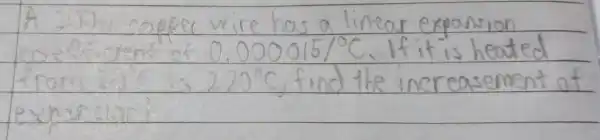 A copper wire has a linear expansion
coefficient of 0.000015/°C. If it is heated
from to 220°C, find the increasement of
expansion